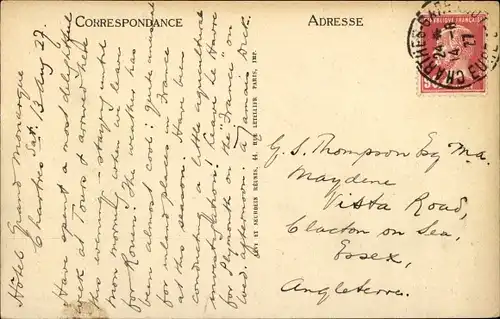 CORRESPONDANCE
Hôtel Grand Monarque
Chartres Sat. 13 Aug 27.
Have spent a most delightful
week at Tours & arrived here
this evening – staying until
mon morning, when we leave
for Rouen. The weather has
been almost cool: quite unusual
for inland places in France
at this season. Have been
conducting a little agricultural
investigation! Leave Le Havre
for Plymouth on the "France" on
Wed. afternoon. A Jamais
LEVY ET NEURDEIN RÉUNIS, 44, RUE LETELLIER PARIS, IMP.
ADRESSE
RÉPUBLIQUE FRANÇAISE
CHARTRES
14 - 8
27
EURE
G. S. Thompson Esq M.a.
Maydene
Vista Road,
Clacton on Sea,
Essex,
Angleterre.